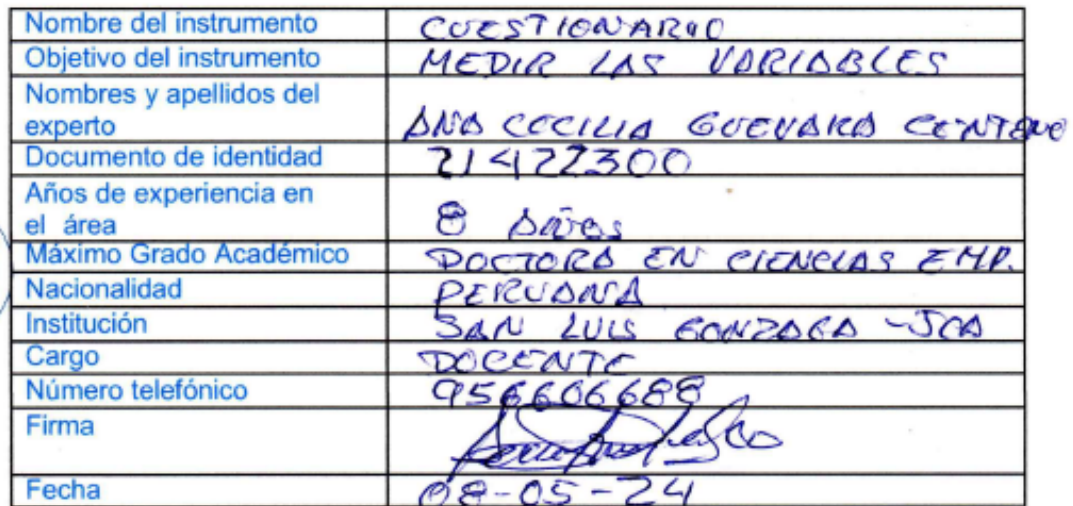 Nombre del instrumento CUESTIONARIO
Objetivo del instrumento MEDIR LAS VARIABLES
Nombres y apellidos del
experto ANA CECILIA GUEVARA CENTENO
Documento de identidad 21422300
Años de experiencia en
el área 8 AÑOS
Máximo Grado Académico DOCTORA EN CIENCIAS EMP.
Nacionalidad PERUANA
Institución SAN LUIS GONZAGA - ICA
Cargo DOCENTE
Número telefónico 956606688
Firma
Fecha 08-05-24